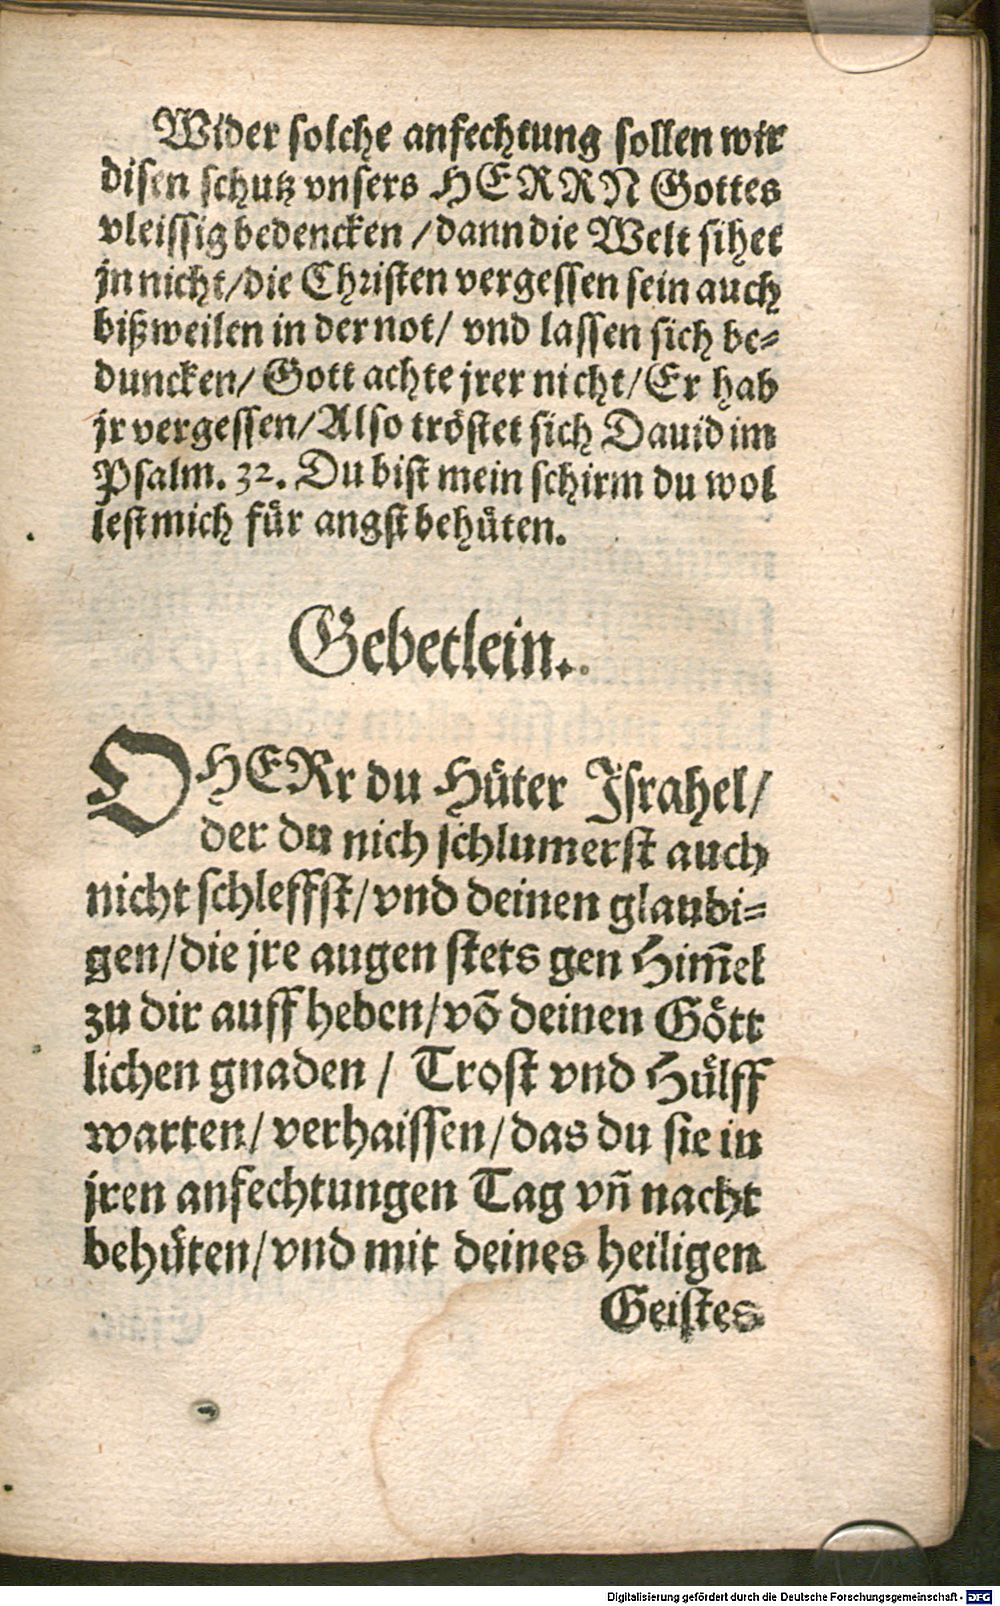 Wider solche anfechtung sollen wir
disen schutz vnsers HERRN Gottes
vleissig bedencken /dann die Welt sihet
jn nicht/die Christen vergessen sein auch
bißweilen in der not/ vnd lassen sich be-
duncken/ Gott achte jrer nicht/Er hab
jr vergessen/Also tröstet sich Dauid im
Psalm. 32. Du bist mein schirm du wol
lest mich für angst behüten.
Gebetlein.
O HERr du Hüter Jsrahel/
der du nich schlumerst auch
nicht schleffst/vnd deinen glaubi-
gen/die jre augen stets gen Him̃el
zu dir auff heben/võ deinen Gött
lichen gnaden / Trost vnd Hülff
warten/verhaissen/das du sie in
jren anfechtungen Tag vñ nacht
behüten/vnd mit deines heiligen
Geistes
Digitalisierung gefördert durch die Deutsche Forschungsgemeinschaft - DFG